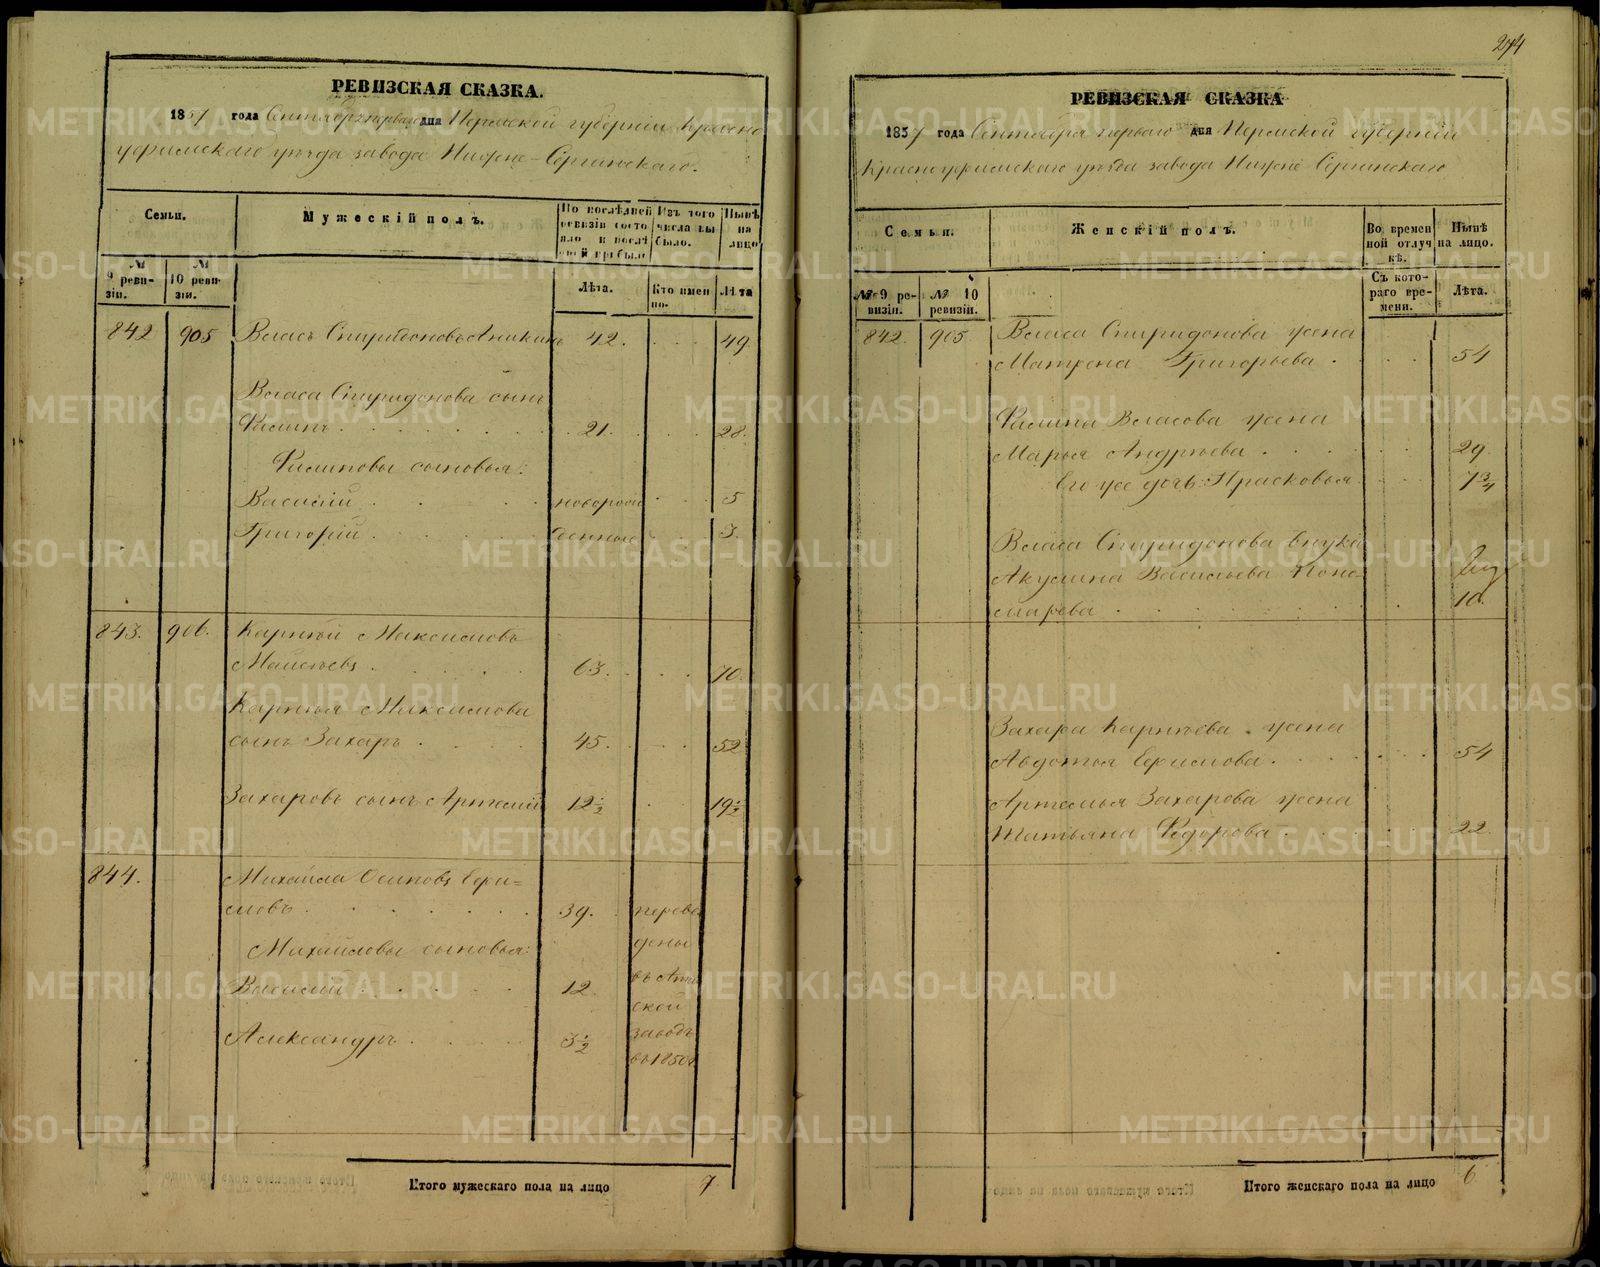 РЕВИЗСКАЯ СКАЗКА.
1857 года Сентября перваго дня Пермской губерніи Красно
уфимскаго уѣзда завода Нижне-Сергинскаго.
Семьи.
Мужескій полъ.
По послѣдней ревизіи состояло и послѣ оной прибыло
Изъ того числа выбыло.
Нынѣ на лицо
№ 9 ревизіи.
№ 10 ревизіи.
Лѣта.
Кто именно.
Лѣта
842 905 Власъ Спиридоновъ Аникинъ 42. 49.
Власа Спиридонова сынъ
Филипъ 21. 28.
Филиповы сыновья:
Василій новорож 5
Григорій денные 3.
843. 906. Карпѣй Максимовъ
63. 70.
Карпѣя Максимова
сынъ Захаръ 45. 52
Захаровъ сынъ Артемій 12½ 19½
844. Михайла Осиповъ Ефи=
мовъ 39. переве
Михайловы сыновья: дены
Василій 12
ской
Александръ 3½ заводъ
въ 1850 г.
Итого мужескаго пола на лицо 7
274
РЕВИЗСКАЯ СКАЗКА
1857 года Сентября перваго дня Пермской губерніи
Красноуфимскаго уѣзда завода Нижне Сергинскаго
Семьи.
Женскій полъ.
Во временной отлучкѣ.
Нынѣ на лицо.
№ 9 ревизіи.
№ 10 ревизіи.
Съ котораго времени.
Лѣта.
842. 905 Власа Спиридонова жена
Матрена Григорьева 54
Филипа Власова жена
Марья Андреева 29.
Его же дочь: Прасковья 7¾
Власа Спиридонова внука
Акулина Васильева Поно=
марева 10.
Захара Карпѣева жена
Авдотья Ефимова 54
Артемья Захарова жена
Татьяна Федорова 22.
Итого женскаго пола на лицо 6
METRIKI.GASO-URAL.RU